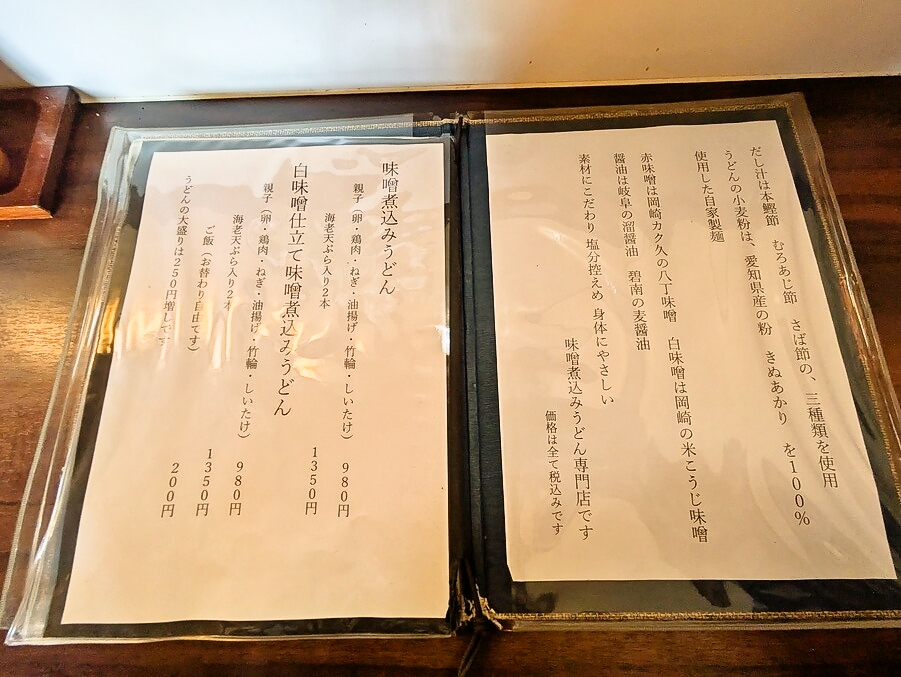 だし汁は本鰹節　むろあじ節　さば節の、三種類を使用
うどんの小麦粉は、愛知県産の粉　きぬあかり　を100％
使用した自家製麺
赤味噌は岡崎カク久の八丁味噌　白味噌は岡崎の米こうじ味噌
醤油は岐阜の溜醤油　碧南の麦醤油
素材にこだわり 塩分控えめ 身体にやさしい
味噌煮込みうどん専門店です
価格は全て税込みです
味噌煮込みうどん
親子（卵・鶏肉・ねぎ・油揚げ・竹輪・しいたけ）　980円
海老天ぷら入り2本　1350円
白味噌仕立て味噌煮込みうどん
親子（卵・鶏肉・ねぎ・油揚げ・竹輪・しいたけ）　980円
海老天ぷら入り2本　1350円
ご飯（お替わり自由です）　200円
うどんの大盛りは250円増しです